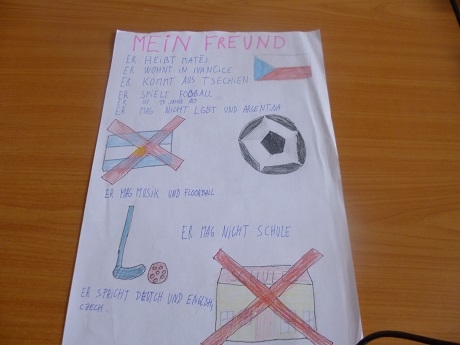 MEIN FREUND
ER HEIßT MATEJ
ER WOHNT IN IVANČICE
ER KOMMT AUS TSECHIEN
ER SPIELT FUßBALL
ER IST 13 JAHRE ALT
ER MAG NICHT LGBT UND ARGENTINA
ER MAG MUSIK UND FLOORBALL
ER MAG NICHT SCHULE
SCHULE
ER SPRICHT DEUTCH UND ENGLISH,
CZECH